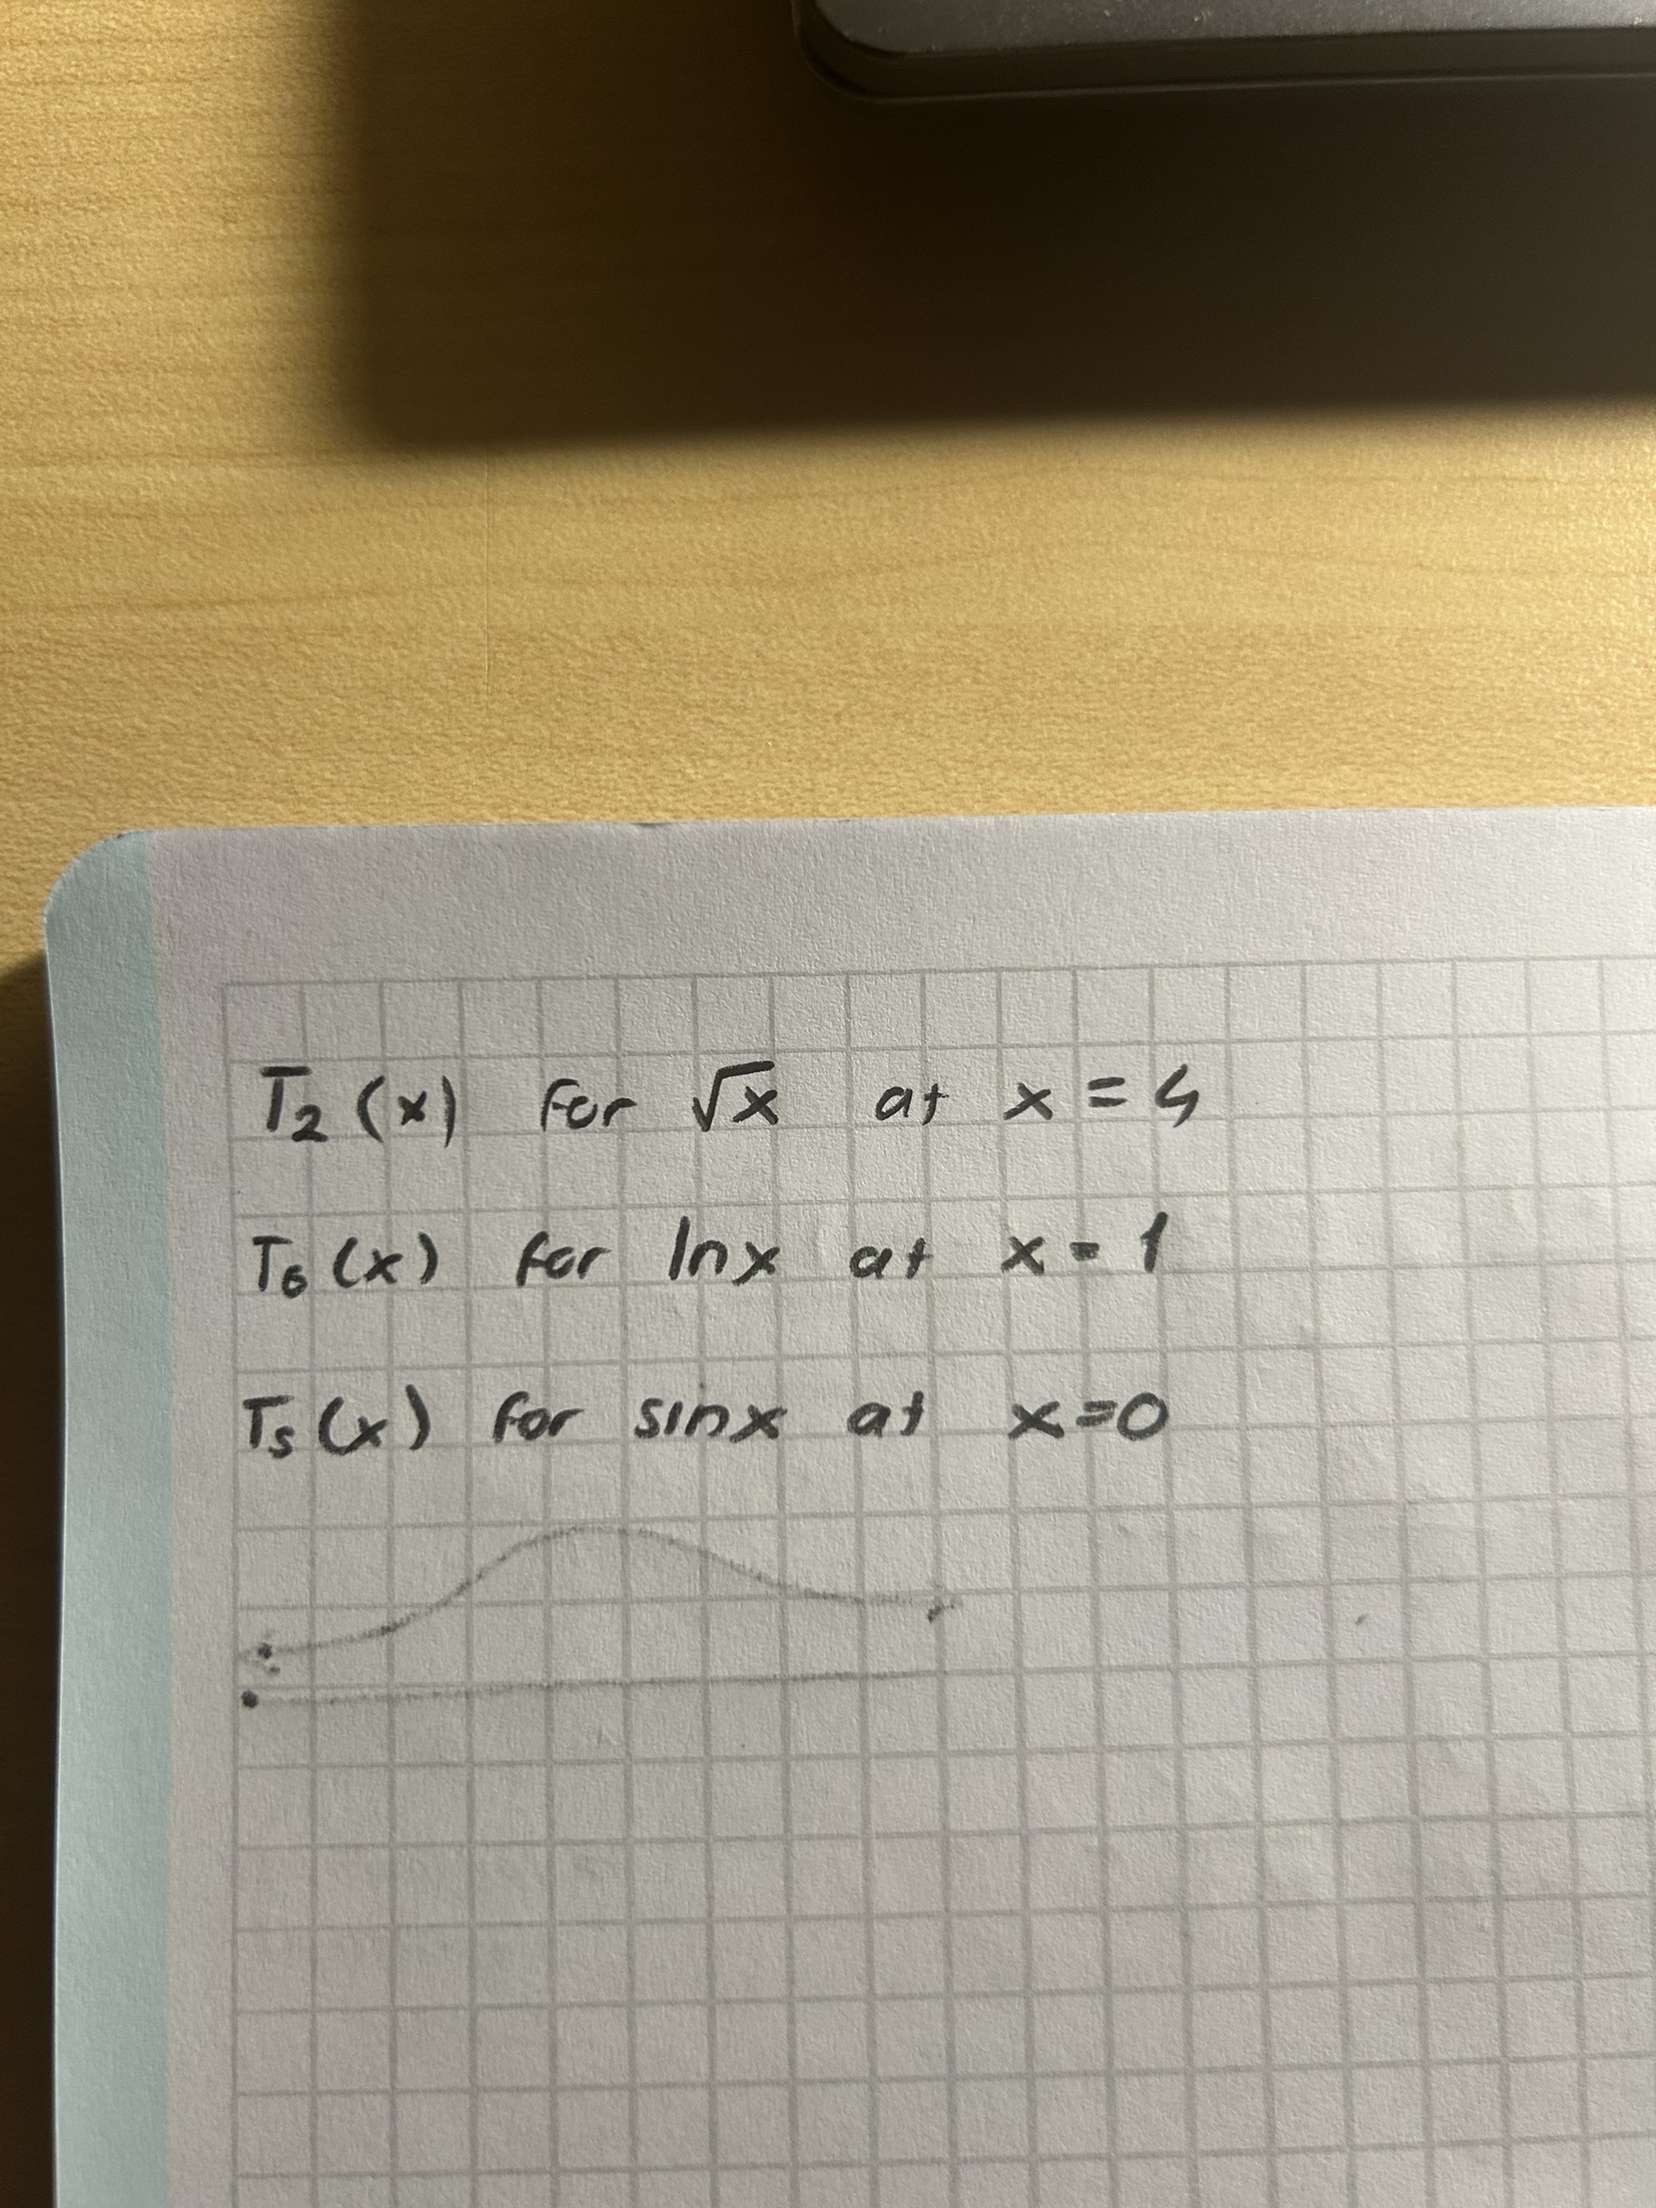 T₂(x) for √x at x = 4
T₆(x) for ln x at x = 1
T₅(x) for sin x at x=0